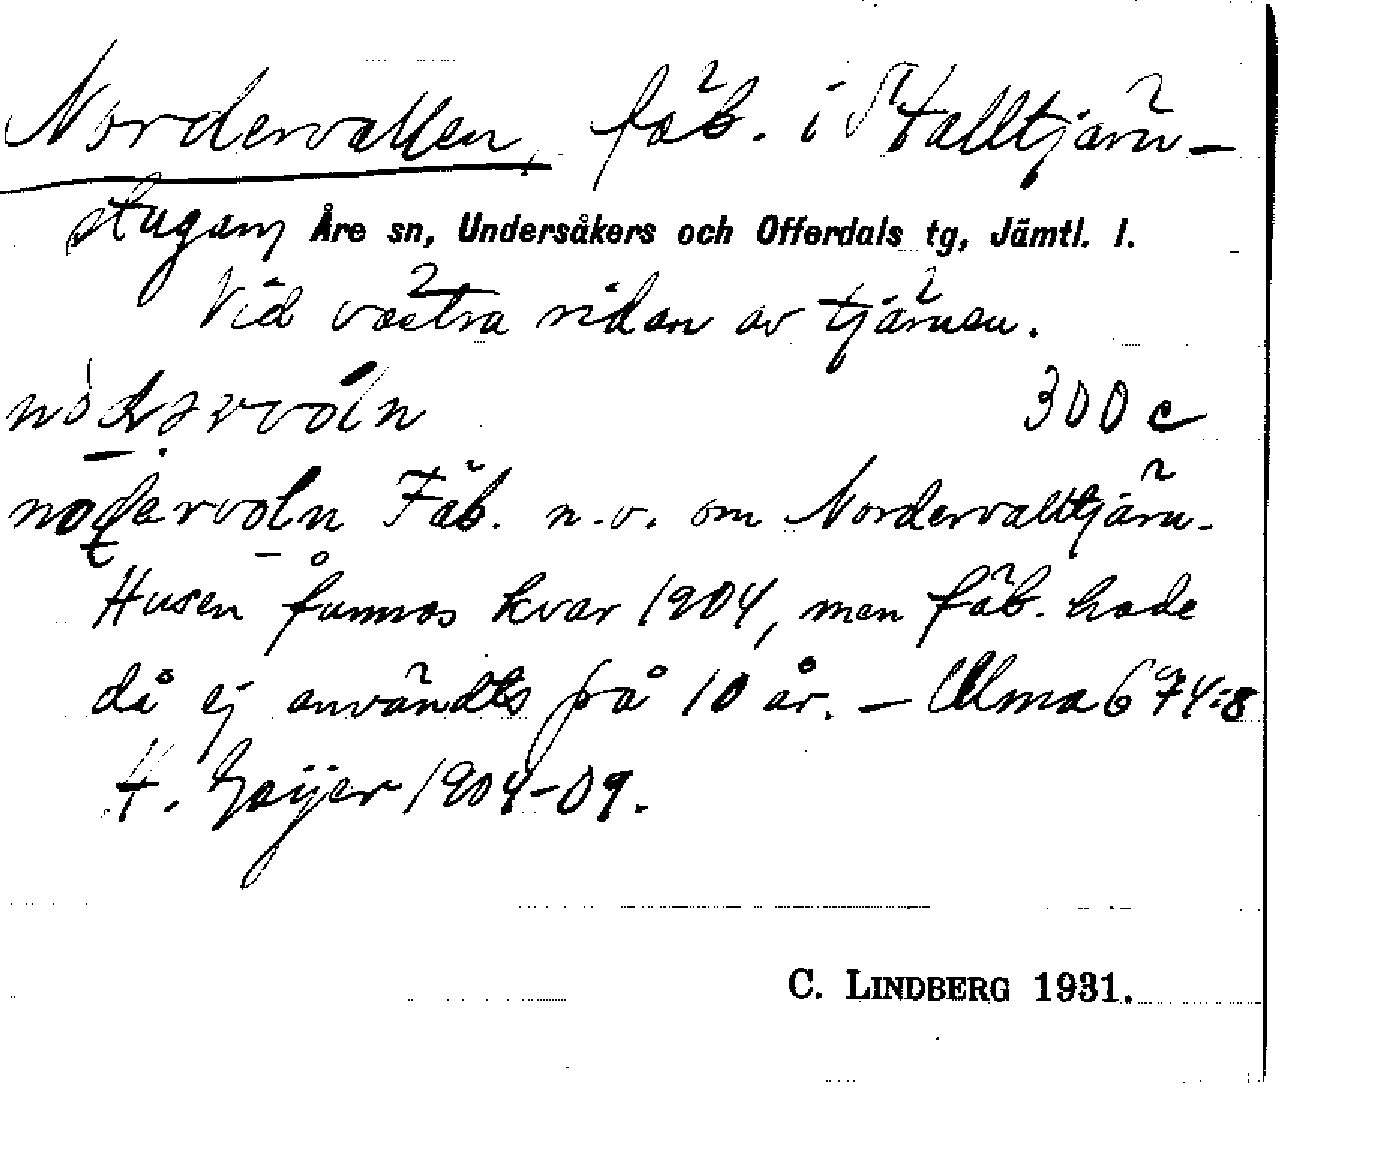 Nordervallen, fäb. i Stalltjärn-
stugan, Åre sn, Undersåkers och Offerdals tg, Jämtl. l.
Vid västra sidan av tjärnen.
300 c
Fäb. n.v. om Nordervalltjärn.
Husen funnos kvar 1904, men fäb. hade
då ej användts på 10 år. – Ulma 674:8
H. Geijer 1904-09.
C. LINDBERG 1931.